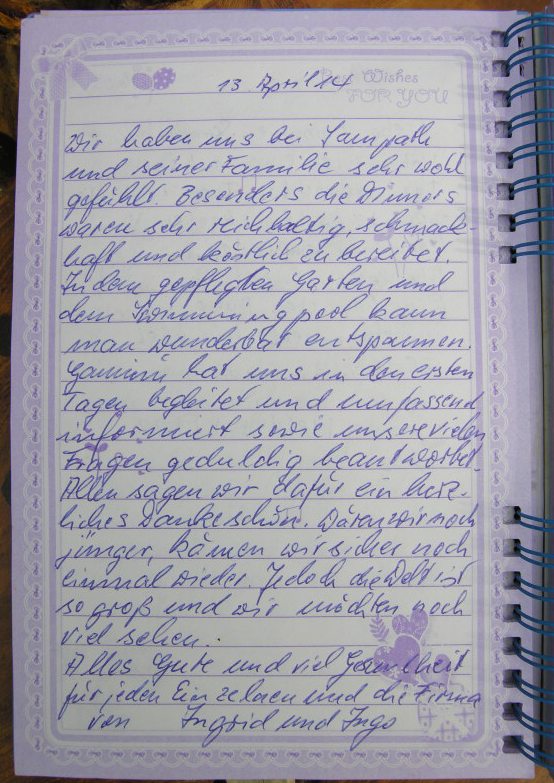 13 April 14
Best Wishes
FOR YOU
Wir haben uns bei Sampath
und seiner Familie sehr wohl
gefühlt. Besonders die Dinners
waren sehr reichhaltig, schmack-
haft und köstlich zubereitet.
In dem gepflegten Garten und
dem Swimmingpool kann
man wunderbar entspannen.
Gamini hat uns in den ersten
Tagen begleitet und umfassend
informiert sowie unsere vielen
Fragen geduldig beantwortet.
Allen sagen wir dafür ein herz-
liches Dankeschön. Wären wir noch
jünger, kämen wir sicher noch
einmal wieder. Jedoch die Welt ist
so groß und wir möchten noch
viel sehen.
Alles Gute und viel Gesundheit
für jeden Einzelnen und die Firma
von Ingrid und Ingo